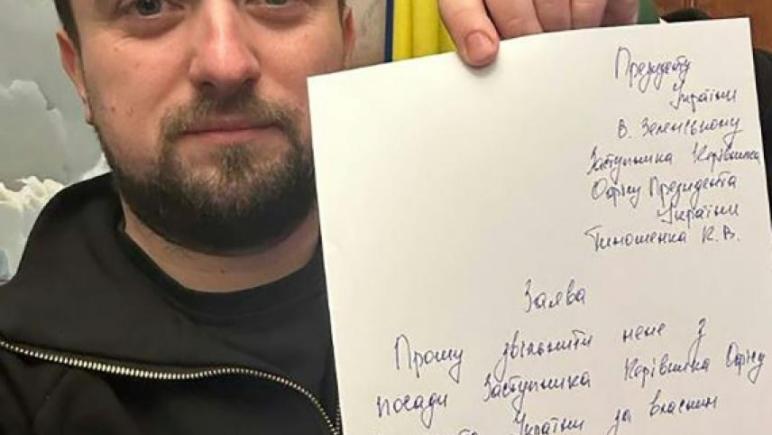 Президенту
України
В. Зеленському
Заступника Керівника
Офісу Президента
України
Тимошенка К.В.
Заява
Прошу звільнити мене з
посади Заступника Керівника Офісу
України за власним